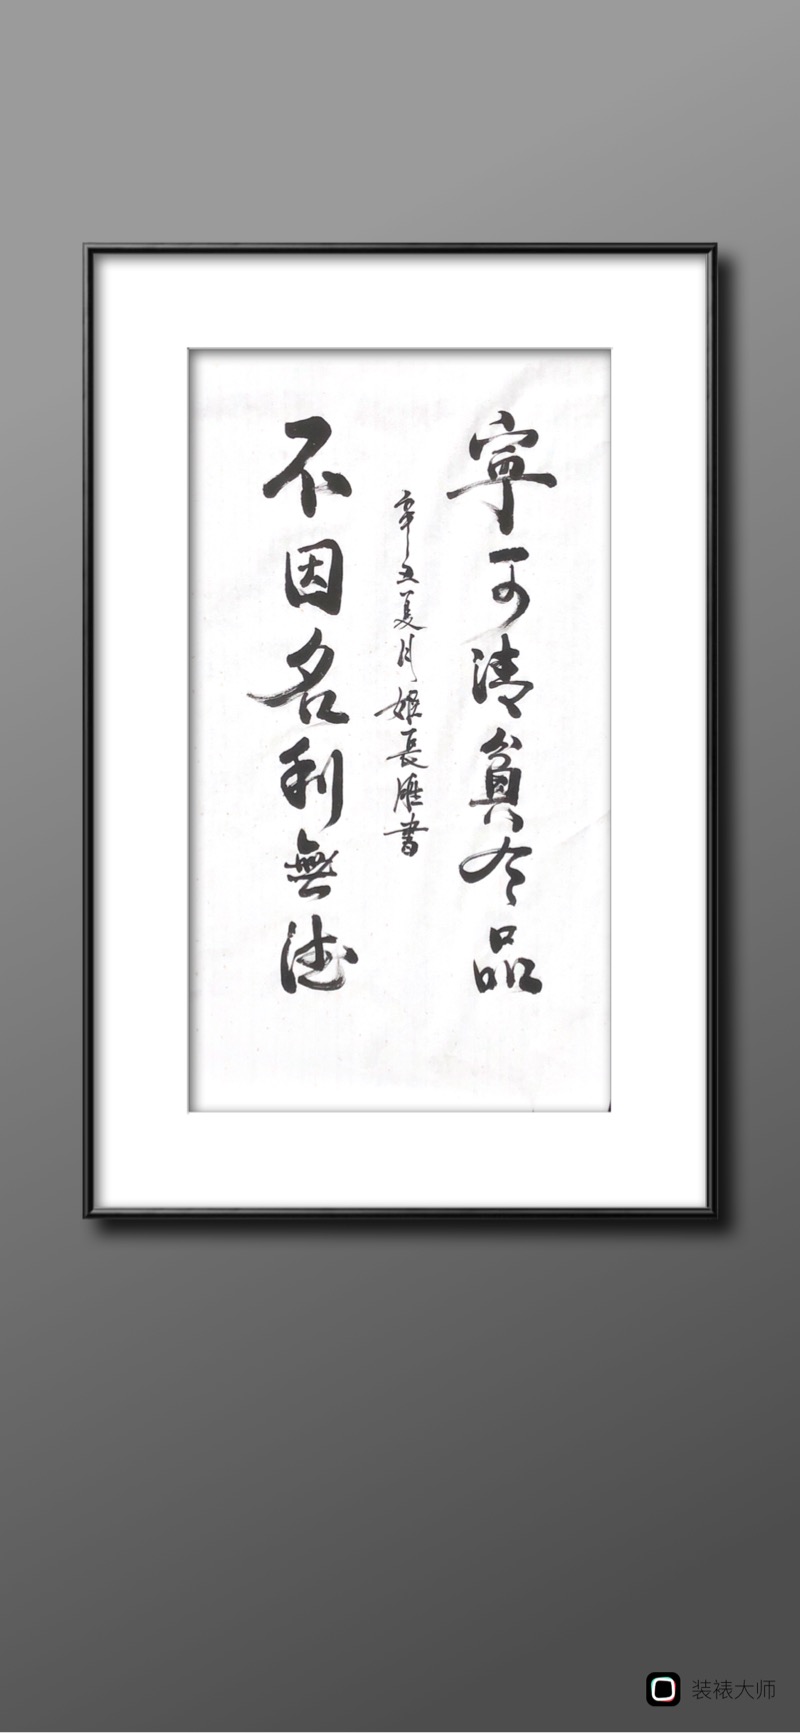 寧可清貧令品
辛丑夏月姬長書
不因名利無德
装裱大师